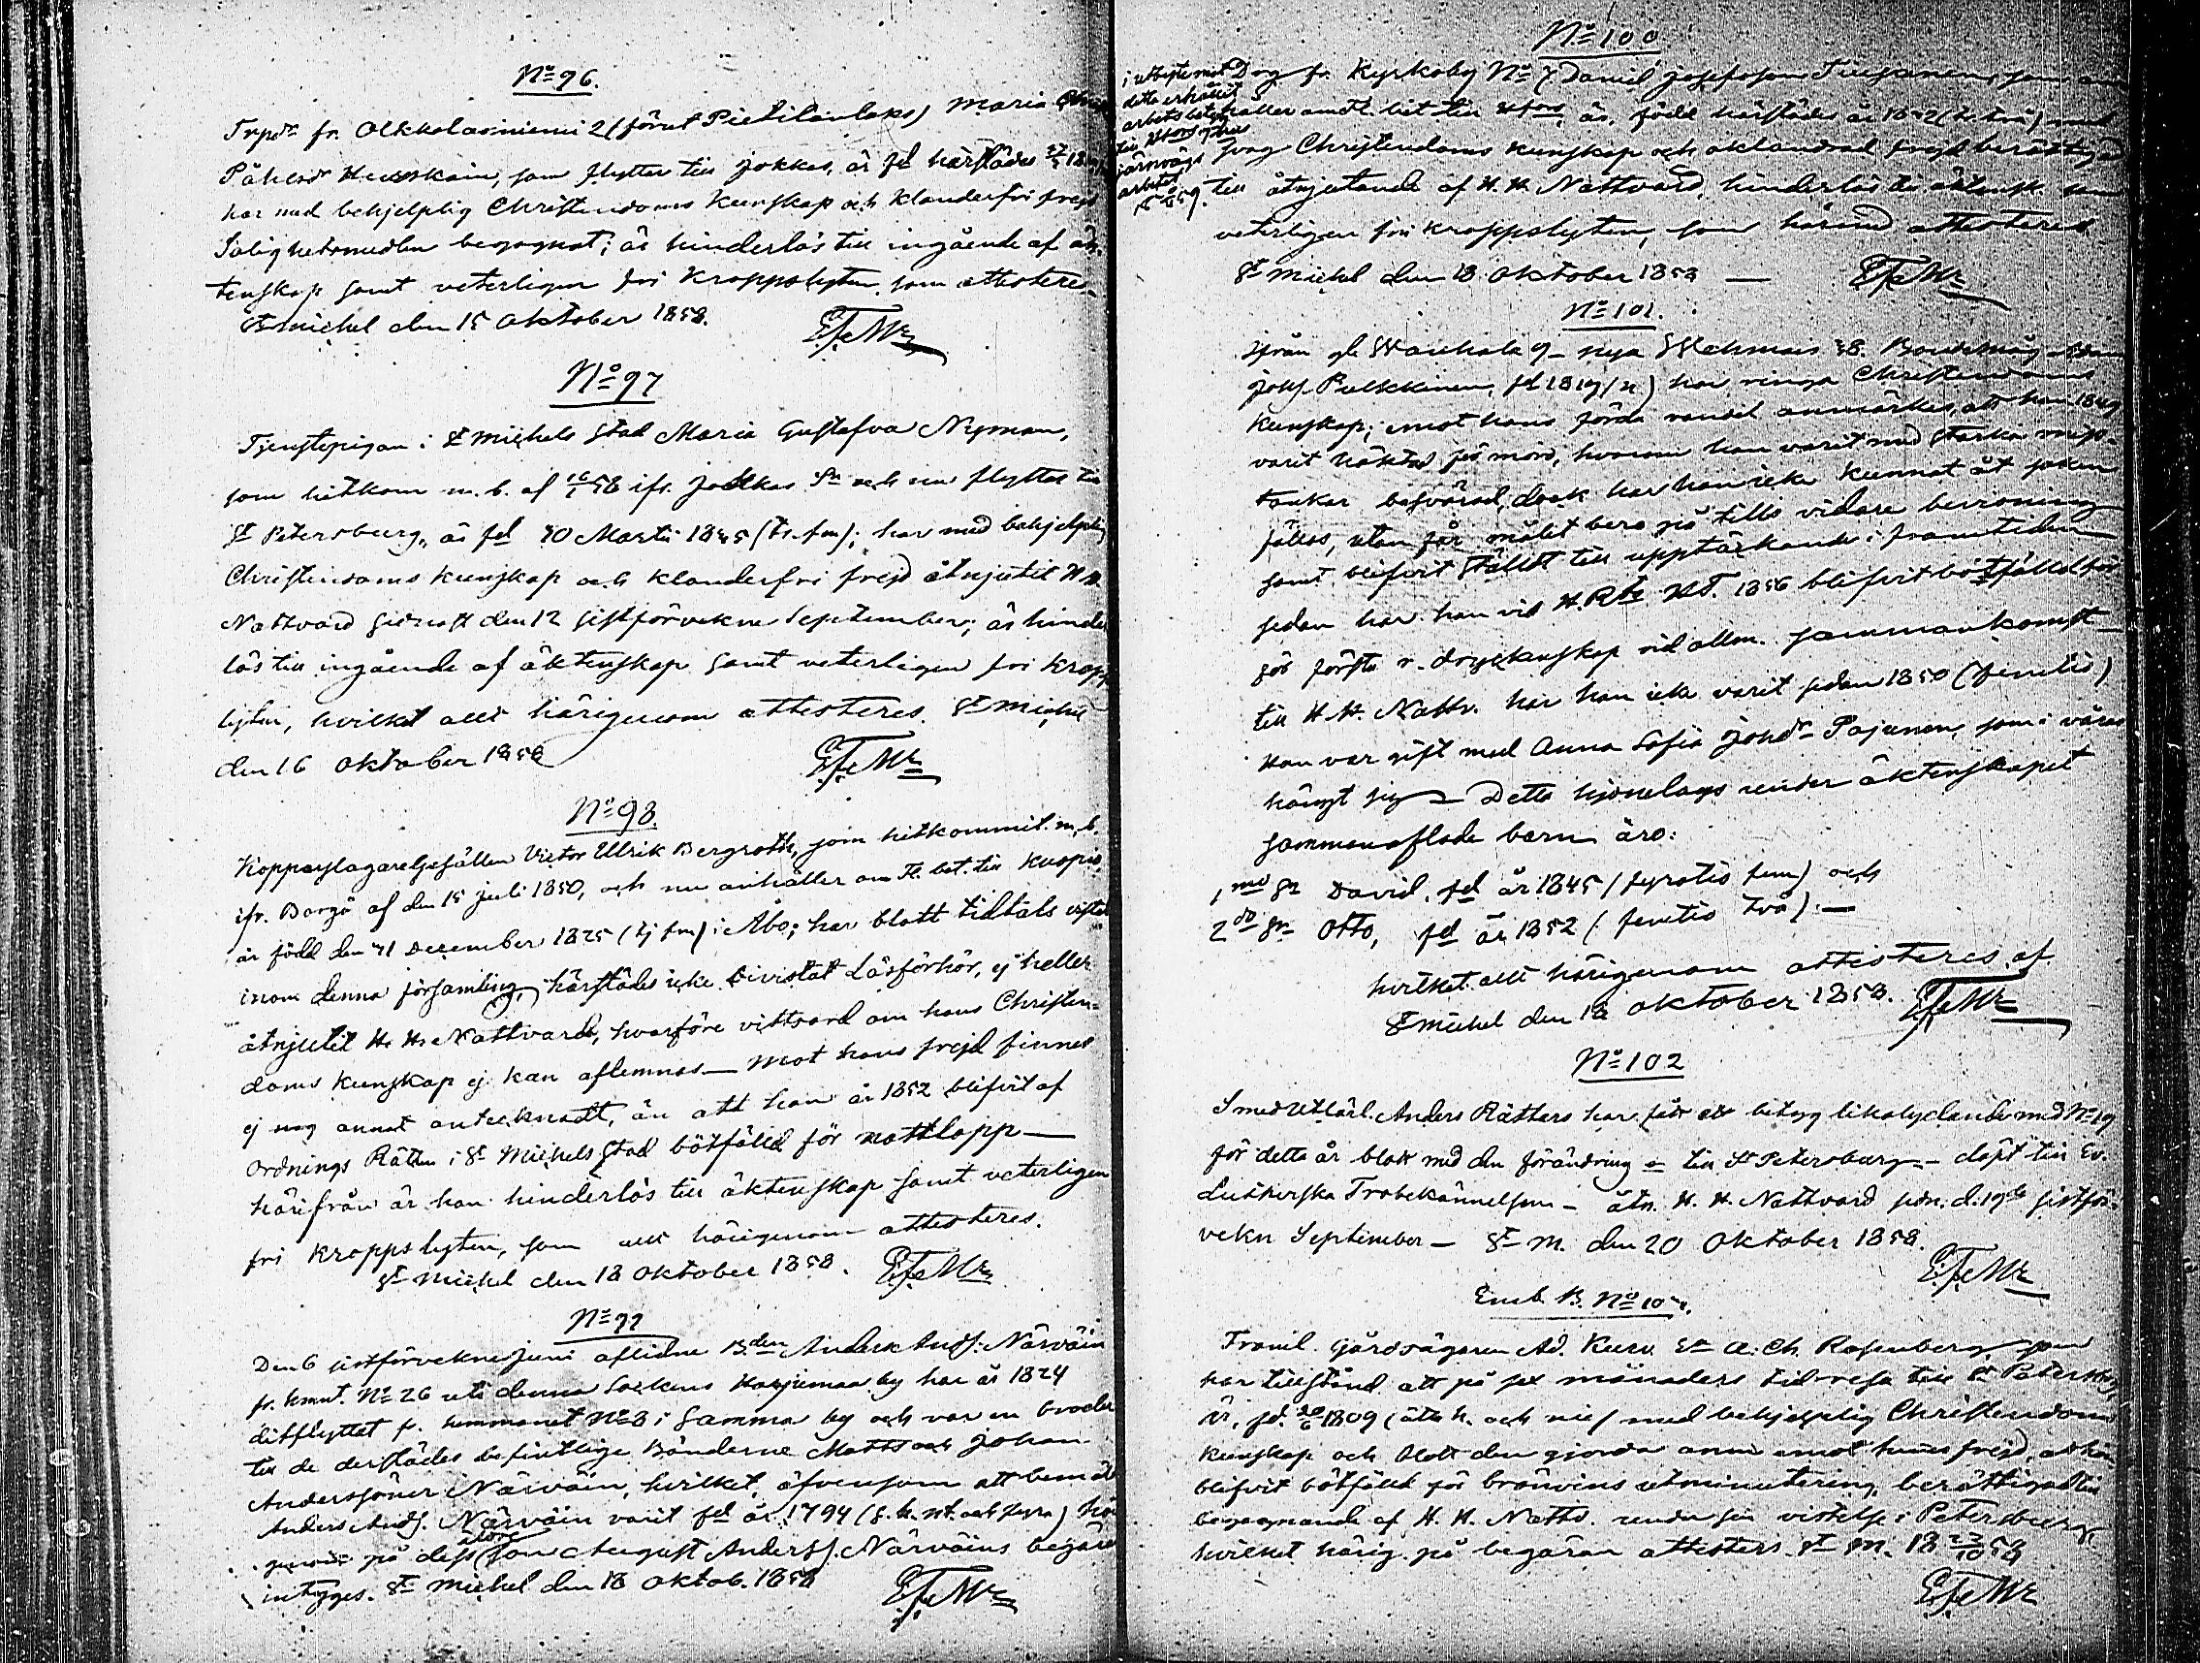 No 96.
Trpdr fr. Olkkolaniemi 2 (förut Pietilänlaks) Maria
Påhlsdr Huuskain, som flyttar till Jokkas, är fd härstädes
har med behjelplig Christendoms Kunskap och klanderfri frejd
Salighetsmedlen begagnat; är hinderlös till ingående af äk-
tenskap samt veterligen fri kroppslyten, som attesteres.
St Michel den 15 Oktober 1858.
No 97
Tjenstepigan i St Michels Stad Maria Gustafva Nyman,
som hitkom m. b. af 16/1 58 ifr. Jockas Sn och nu flyttar till
St Petersburg, är fd 10 Martii 1845 (tr. fm); har med behjelplig
Christendoms Kunskap och klanderfri frejd åtnjutit H. H.
Nattvard sidnast den 12 sistförvekne September; är hinder
lös till ingående af äktenskap samt veterligen fri kropps
lyten, hvilket allt härigenom attesteres. St Michel
den 16 Oktober 1858
No 98.
Kopparslagaregesällen Victor Ullrik Bergroth, som hitkommit m. b.
ifr. Borgå af den 15 Juli 1850, och nu anhåller om fl. bet. till Kuopio,
är född den 31 December 1825 (tj fm) i Åbo; har blott tidtals vistats
inom denna församling, härstädes icke bivistat Läsförhör, ej heller
åtnjutit H. H. Nattvard, hvarföre vittsord om hans Christen-
doms Kunskap ej kan aflemnas — mot hans frejd finnes
ej nog annat antecknadt, än att han år 1852 blifvit af
Ordnings Rätten i St Michels Stad bötfälld för nattlopp —
härifrån är han hinderlös till äktenskap samt veterligen
fri kroppslyten, som allt härigenom attesteres.
St Michel den 18 Oktober 1858.
No 99
Den 6 sistförvekne Juni aflidne Bden Anders Andj: Närväin
fr. hmnt. No 26 uti denna Sockens Harjumaa by har år 1824
ditflyttat fr. hemmanet No 3 i samma by och var en broder
till de derstädes befintlige Bönderne Matts och Johan
Anderssöner Närväin, hvilket, äfvensom att bemälte
Anders Andj. Närväin varit fd år 1794 (s. h. nt. och fyra) här
på dess son August Andersj. Närväins begäran
intygges. St Michel den 18 Oktob. 1858
No 100
i utbyte mot
detta erhållit
arbetsbetyg
till Hfors
järnvägs
arbetet
Drg fr. Kyrkoby No 7 Daniel Josefsson Tiusanen, som an
håller om fl. bet till Hfors, är född härstädes år 1832 (tr. två) med
svag Christendoms kunskap och oklandrad frejd berättigad
till åtnjutande af H. H. Nattvard, hinderlös till äktensk. samt
veterligen fri kroppslyten, som härmed attesteres
St Michel den 18 Oktober 1858 —
No 101.
Ifrån gla Wanhala 9 – nya Wehmais 38. Bondemåg Adam
Johj. Pulkkinen, fd 1819 (n) har ringa Christendoms
Kunskap; emot hans förda vandel anmärkes, att han 1849
varit häktad för mord, hvarom han varit med starka miss-
tankar besvärad, dock har han icke kunnat åt saken
fällas, utan får målet bero på tills vidare bevisning
samt blifvit ställdt till upptäckande i framtiden
sedan har han vid H.Rts HT. 1856 blifvit bötfälld för
för första r. dryckenskap vid allm. sammankomst —
till H. H. Nattv. har han icke varit sedan 1850 (femtio)
Han var gift med Anna Sofia Johdr Pajunen, som i våras
hängt sig — Detta hjonelags under äktenskapet
sammanaflade barn äro:
1mo Sn David, fd år 1845 (fyratio fem) och
2do Sn Otto, fd år 1852 (femtio två) —
hvilket allt härigenom attesteres af
St Michel den 18 Oktober 1858.
No 102
Smed Utlärl. Anders Rätters har fått ett betyg likalydande med No 19
för detta år blott med den förändring = till St Petersburg – döpt till Ev.
Lutherska Trobekännelsen – åtn. H. H. Nattvard sedn. d. 19de sistför-
vekn September — St M. den 20 Oktober 1858.
No 103.
Framl. Gårdsägaren Ad. Kurv. Er A. Ch. Rosenberg som
har tillstånd att på sex månaders tid resa till St Petersburg,
är fd. 20/6 1809 (åtta h. och nie) med behjelplig Christendoms
kunskap och blott den gjorda anm emot hennes frejd, att hon
blifvit bötfälld för bränvins utminutering, berättigad till
begagnande af H. H. Nattv. under sin vistelse i Petersburg,
hvilket härig. på begäran attesters. St M. 18 23/10 58